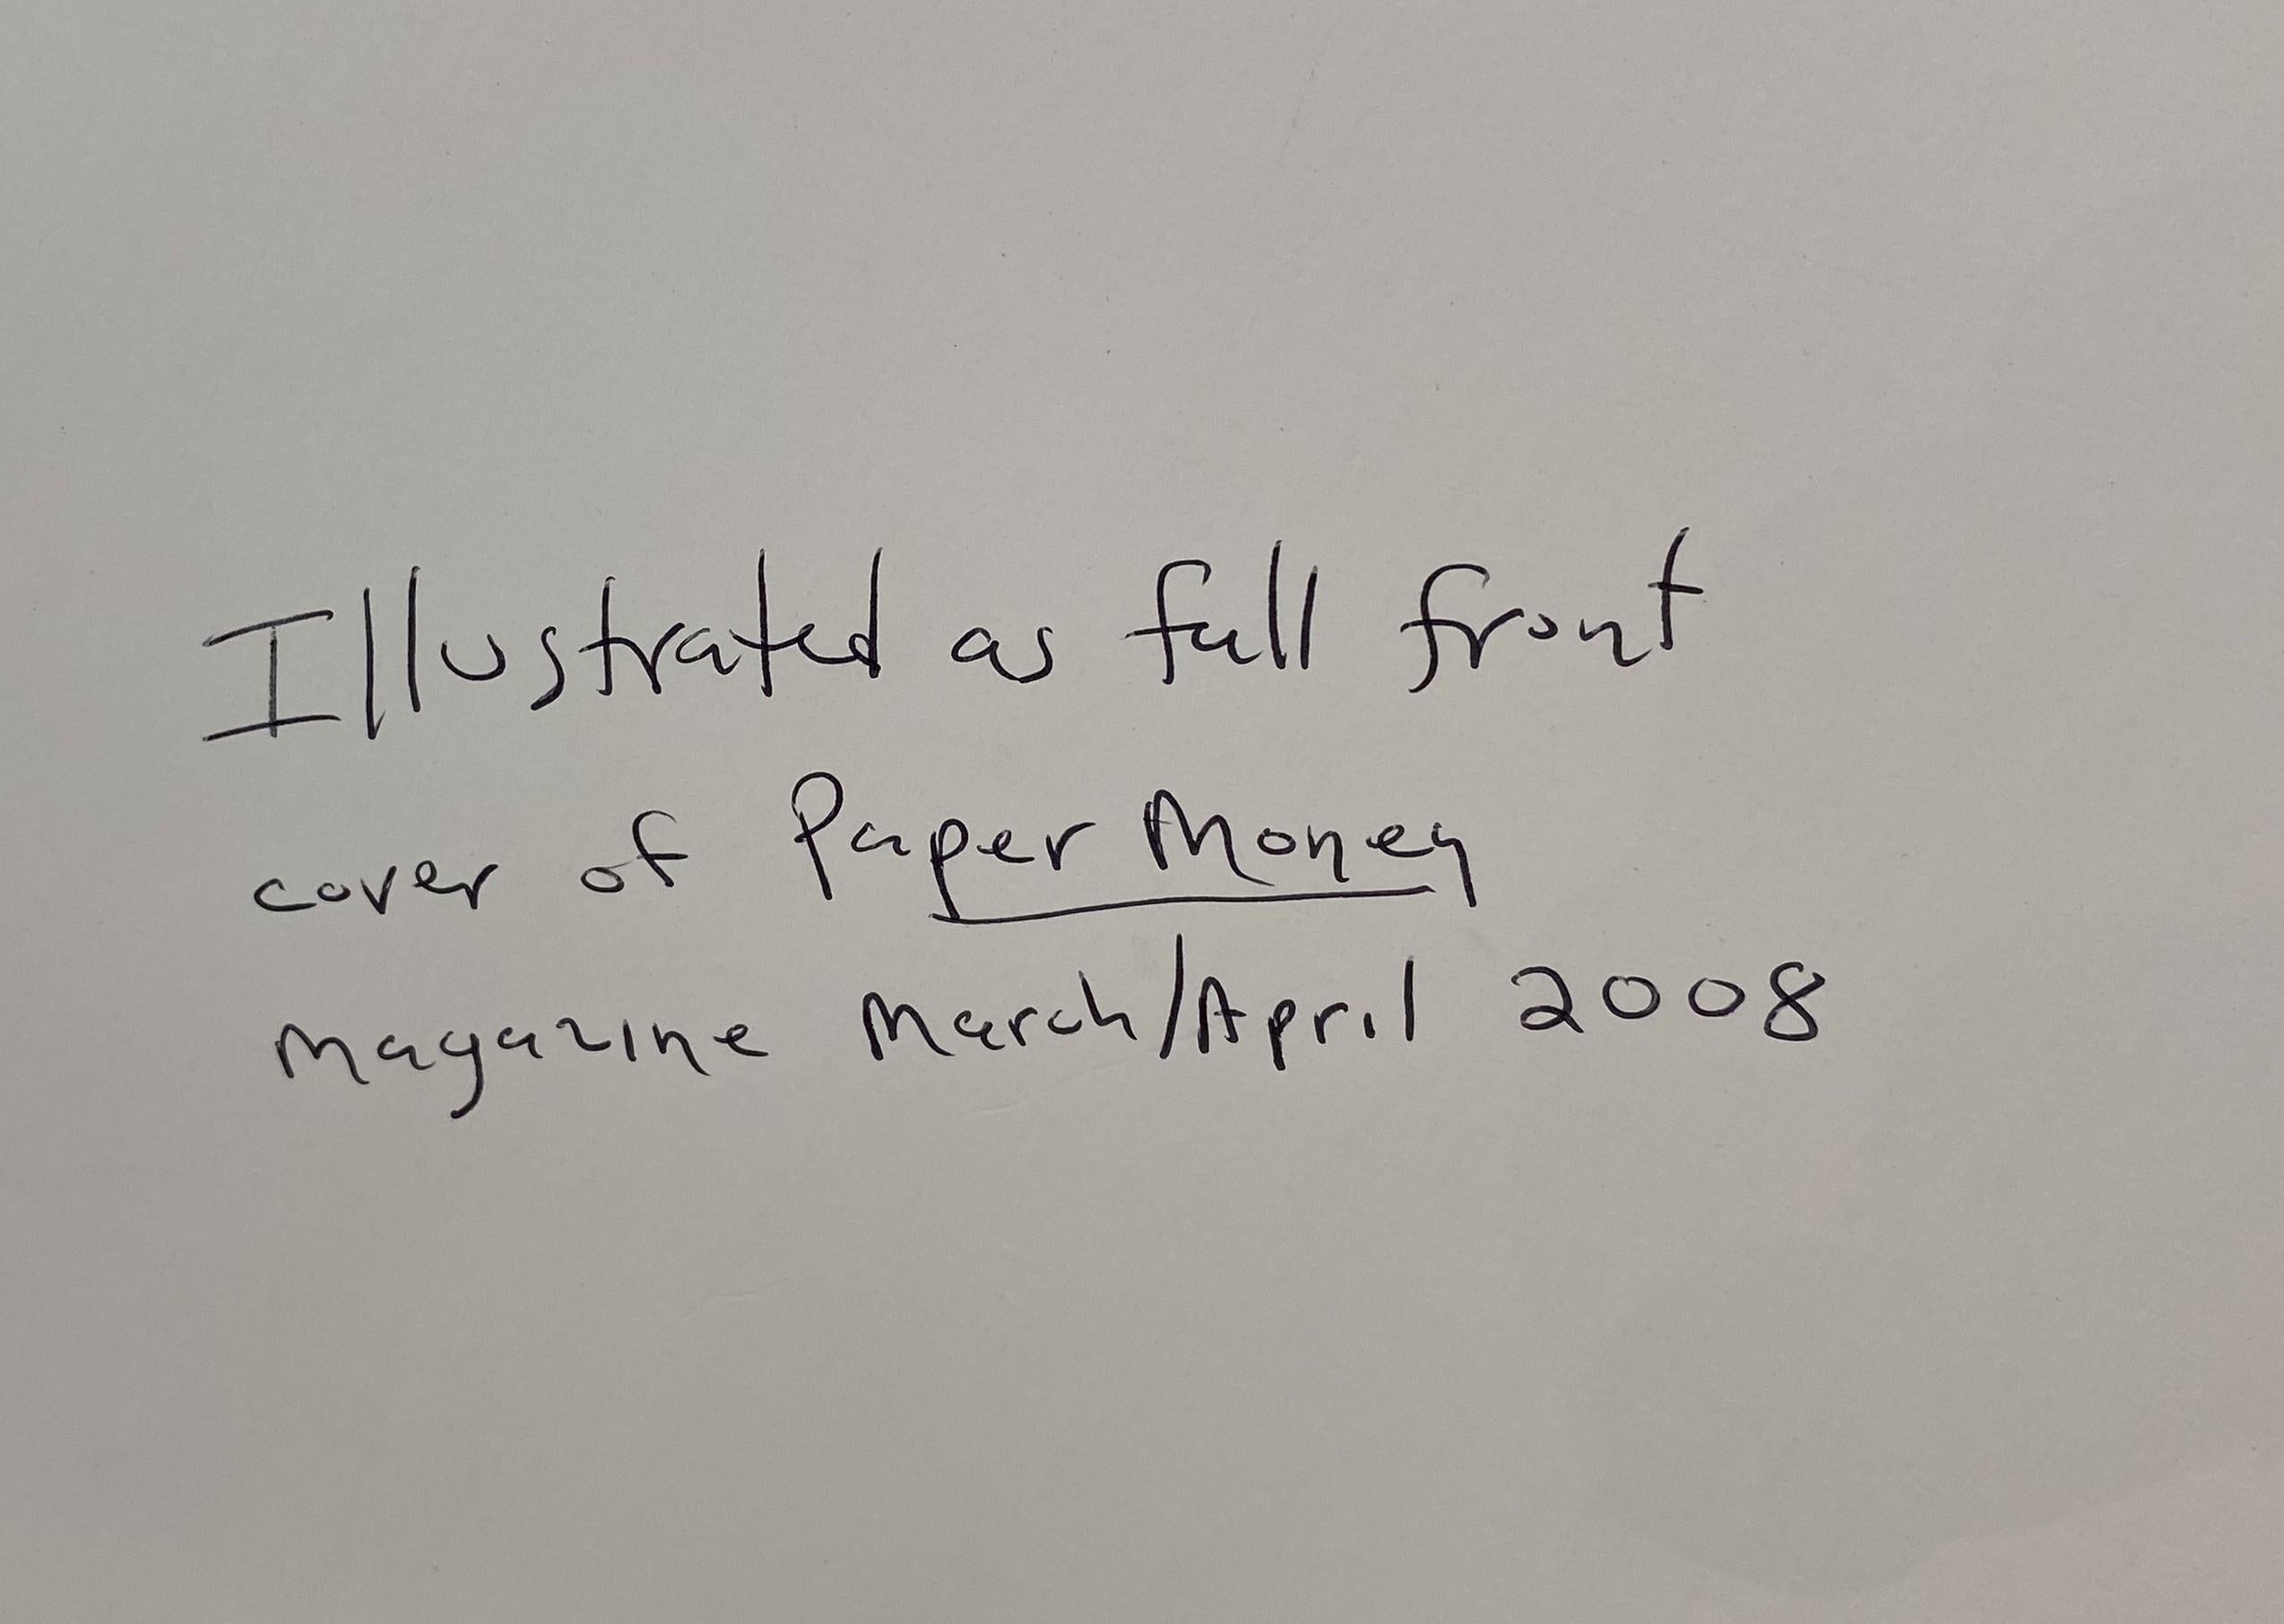 Illustrated as full front
cover of Paper Money
magazine March/April 2008